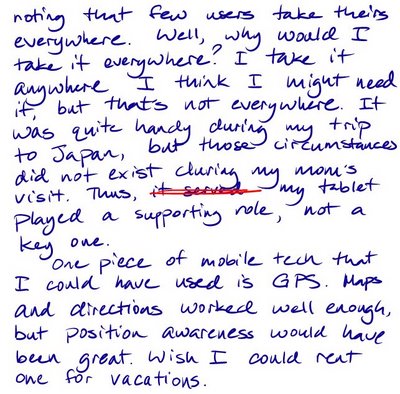 noting that few users take theirs
everywhere. Well, why would I
take it everywhere? I take it
anywhere I think I might need
it, but that's not everywhere. It
was quite handy during my trip
to Japan, but those circumstances
did not exist during my mom's
visit. Thus, it served my tablet
played a supporting role, not a
key one.
One piece of mobile tech that
I could have used is GPS. Maps
and directions worked well enough,
but position awareness would have
been great. Wish I could rent
one for vacations.